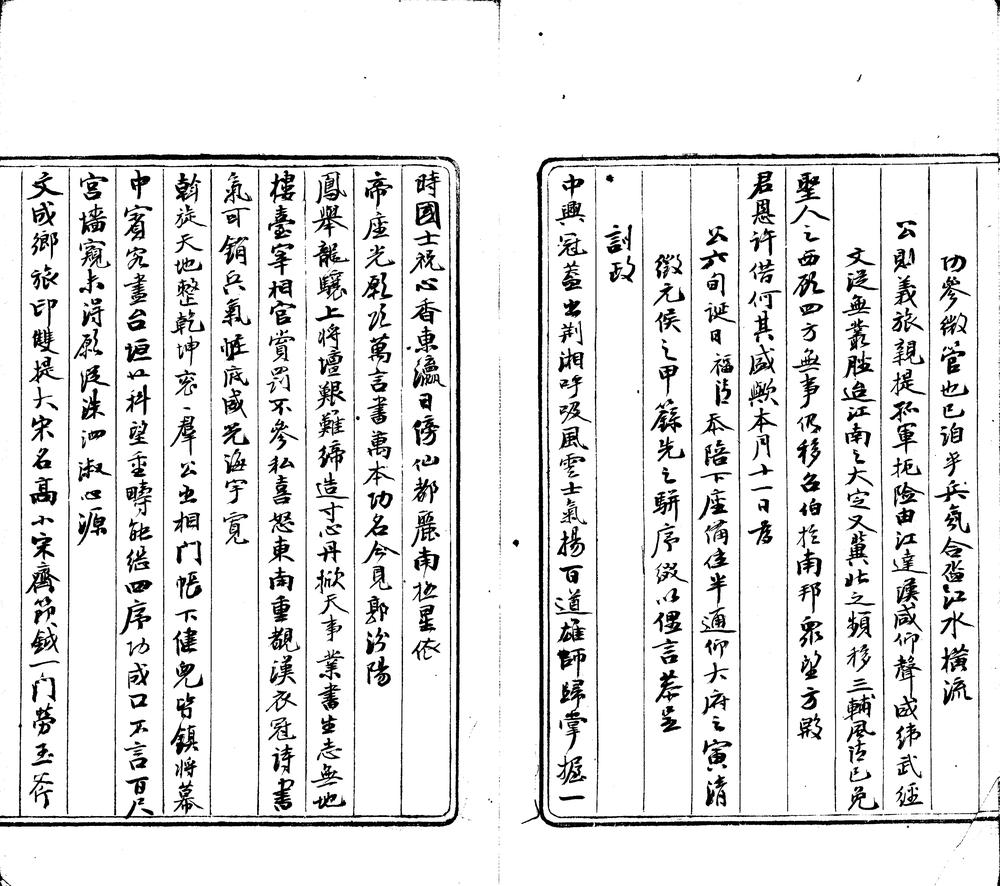 功參微管也已洎乎兵氛合沓江水橫流
公則義旅親提孤軍扼險由江達漢咸仰聲威緯武經
文從無叢脞迨江南之大定又冀北之頻移三輔風清已免
聖人之西顧四方無事仍移召伯於南邦衆望方殷
君恩許借何其盛歟本月十一日為
公六旬誕日福清忝陪下座備位半通仰大府之寅清
徵元侯之甲籙先之駢序綴以俚言恭呈
訓政
中興冠蓋出荆湘呼吸風雲士氣揚百道雄師歸掌握一
時國士祝心香東瀛日傍仙都麗南極星依
帝座光願頌萬言書萬本功名今見郭汾陽
鳳舉龍驤上將壇艱難締造寸心丹掀天事業書生志無地
樓臺宰相官賞罰不參私喜怒東南重覩漢衣冠詩書
氣可銷兵氣恠底威光海宇寬
斡旋天地整乾坤衮衮羣公出相门帳下健兒皆鎮將幕
中賓客盡台垣廿科望重疇能繼四序功成口不言百尺
宮墻窺未得願從洙泗淑心源
文成鄉旅印雙提大宋名高小宋齊節鉞一门勞玉斧